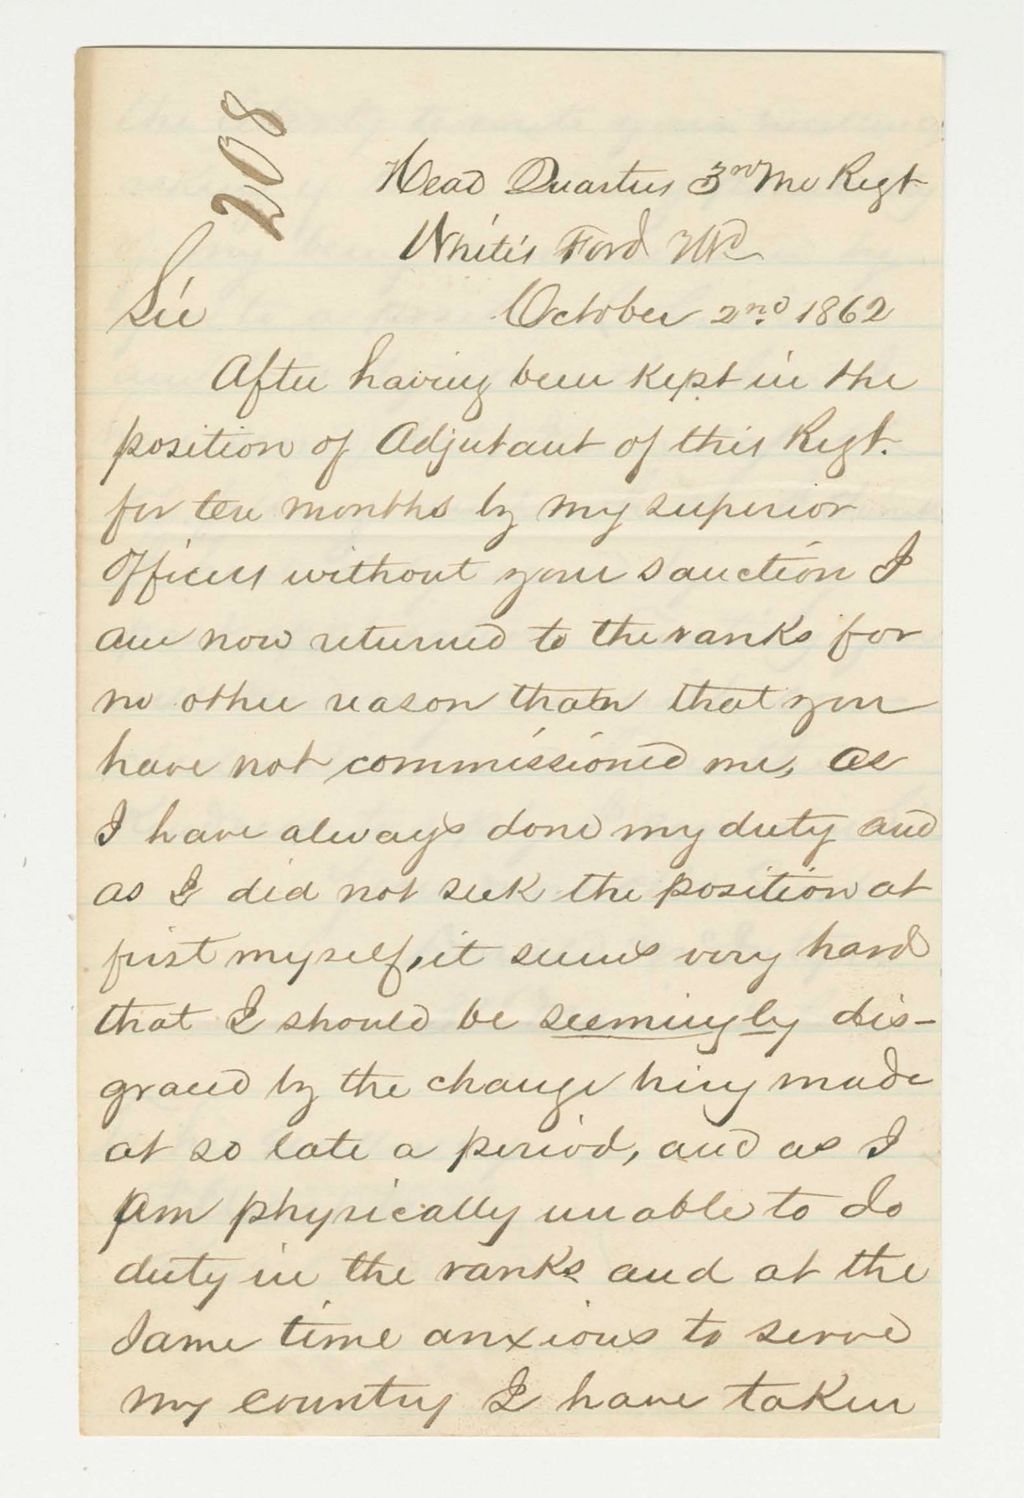 208
Head Quarters 3rd Me Regt
White's Ford Md
Sir
October 2nd 1862
After having been kept in the
position of Adjutant of this Regt.
for ten months by my superior
officers without your sanction I
am now returned to the ranks for
no other reason than that you
have not commissioned me, As
I have always done my duty and
as I did not seek the position at
first myself, it seems very hard
that I should be seemingly dis-
graced by the change being made
at so late a period, and as I
am physically unable to do
duty in the ranks and at the
same time anxious to serve
my country I have taken